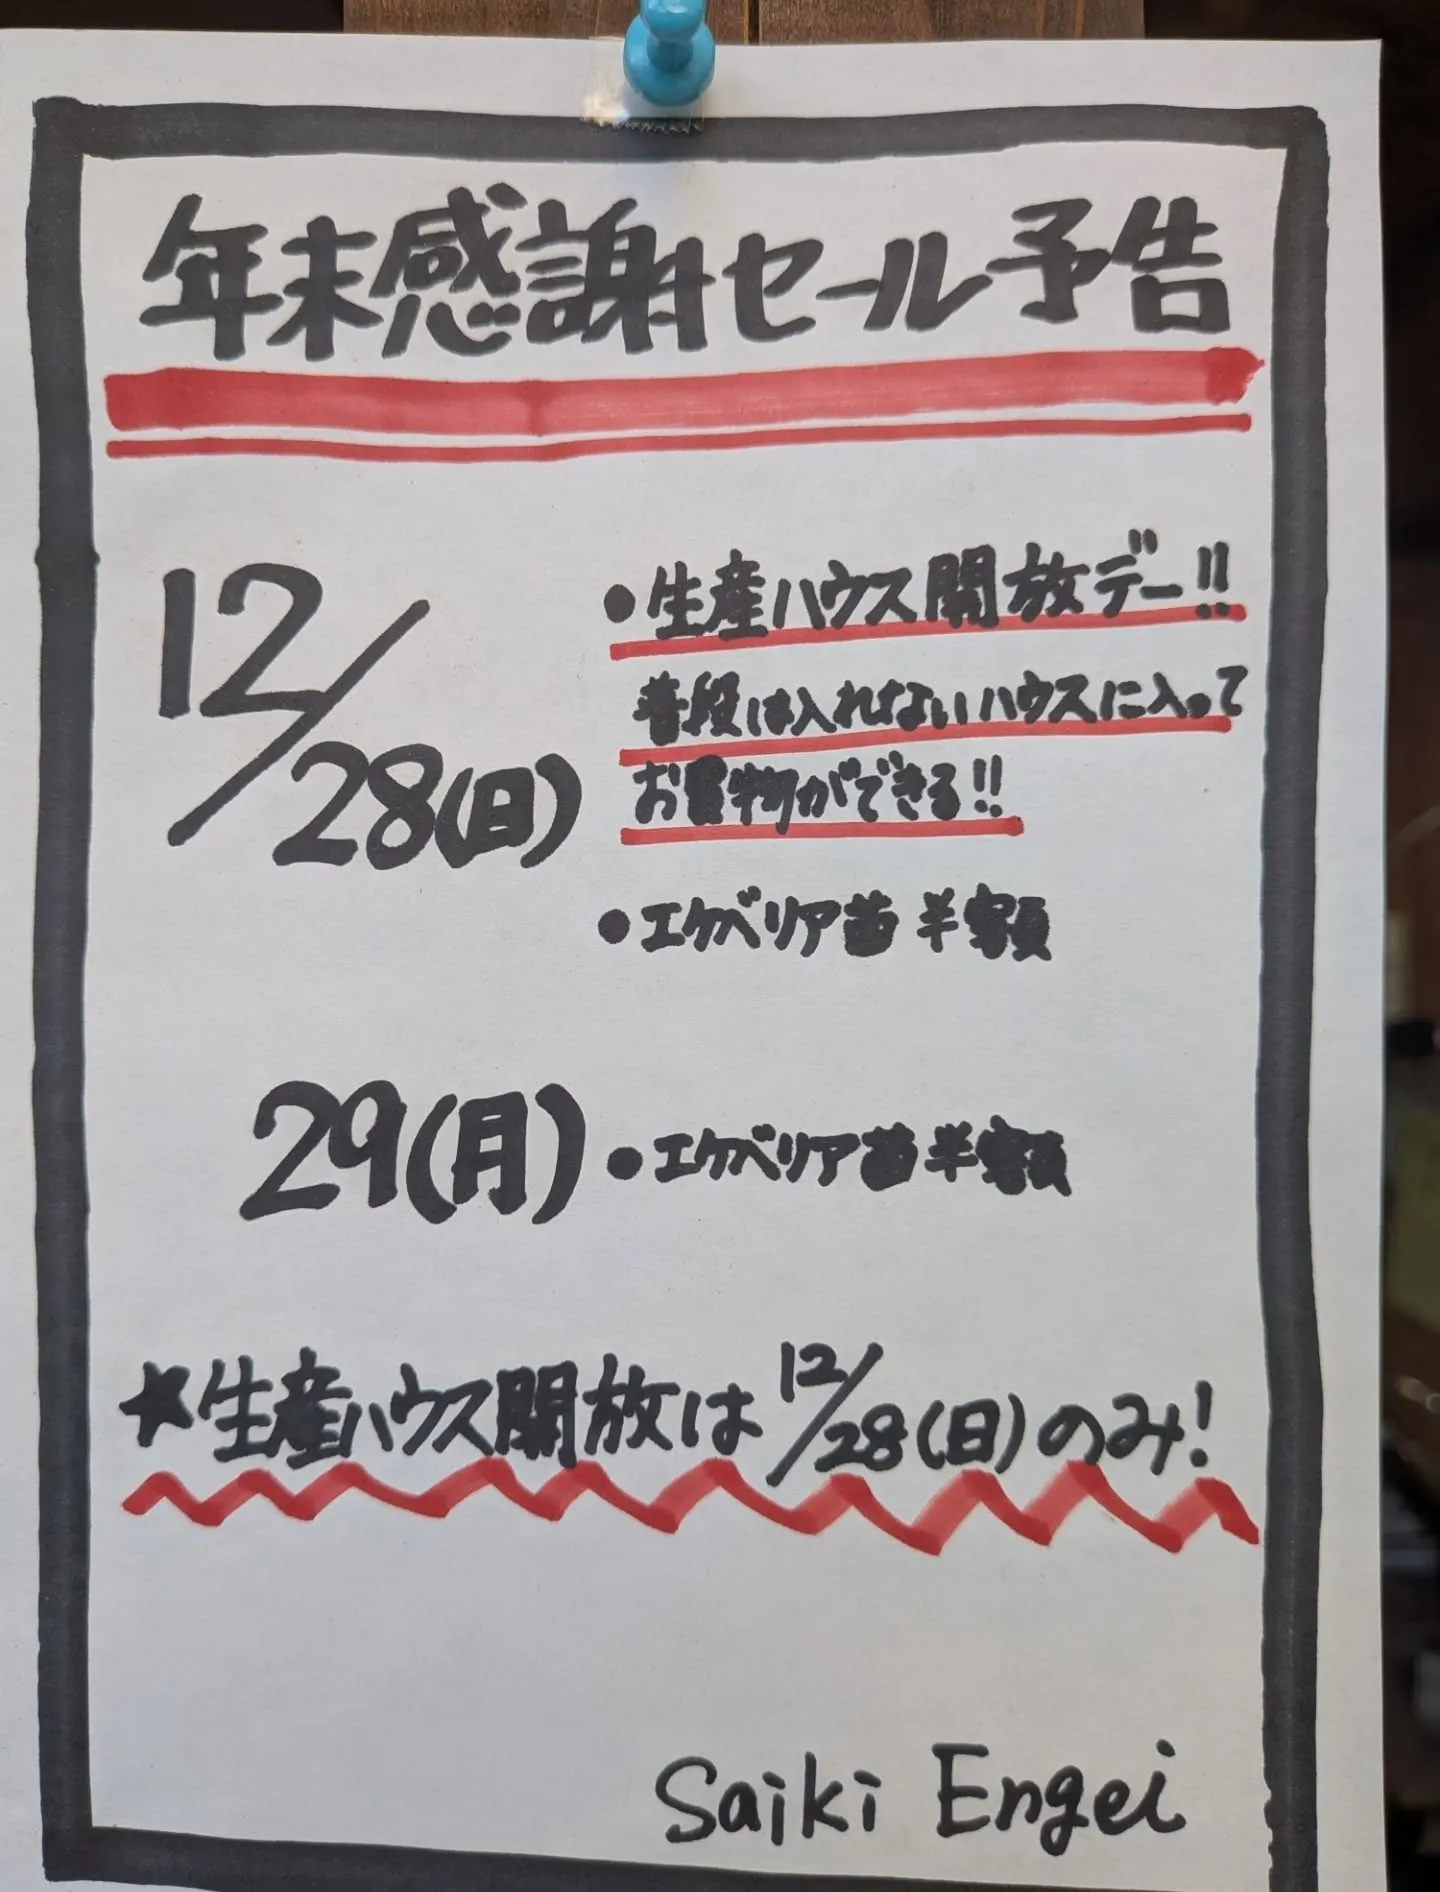 年末感謝セール予告
12/28(日)
●生産ハウス開放デー!!
普段は入れないハウスに入って
お買物ができる!!
●エケベリア苗半額
29(月)
●エケベリア苗半額
★生産ハウス開放は12/28(日)のみ!
Saiki Engei